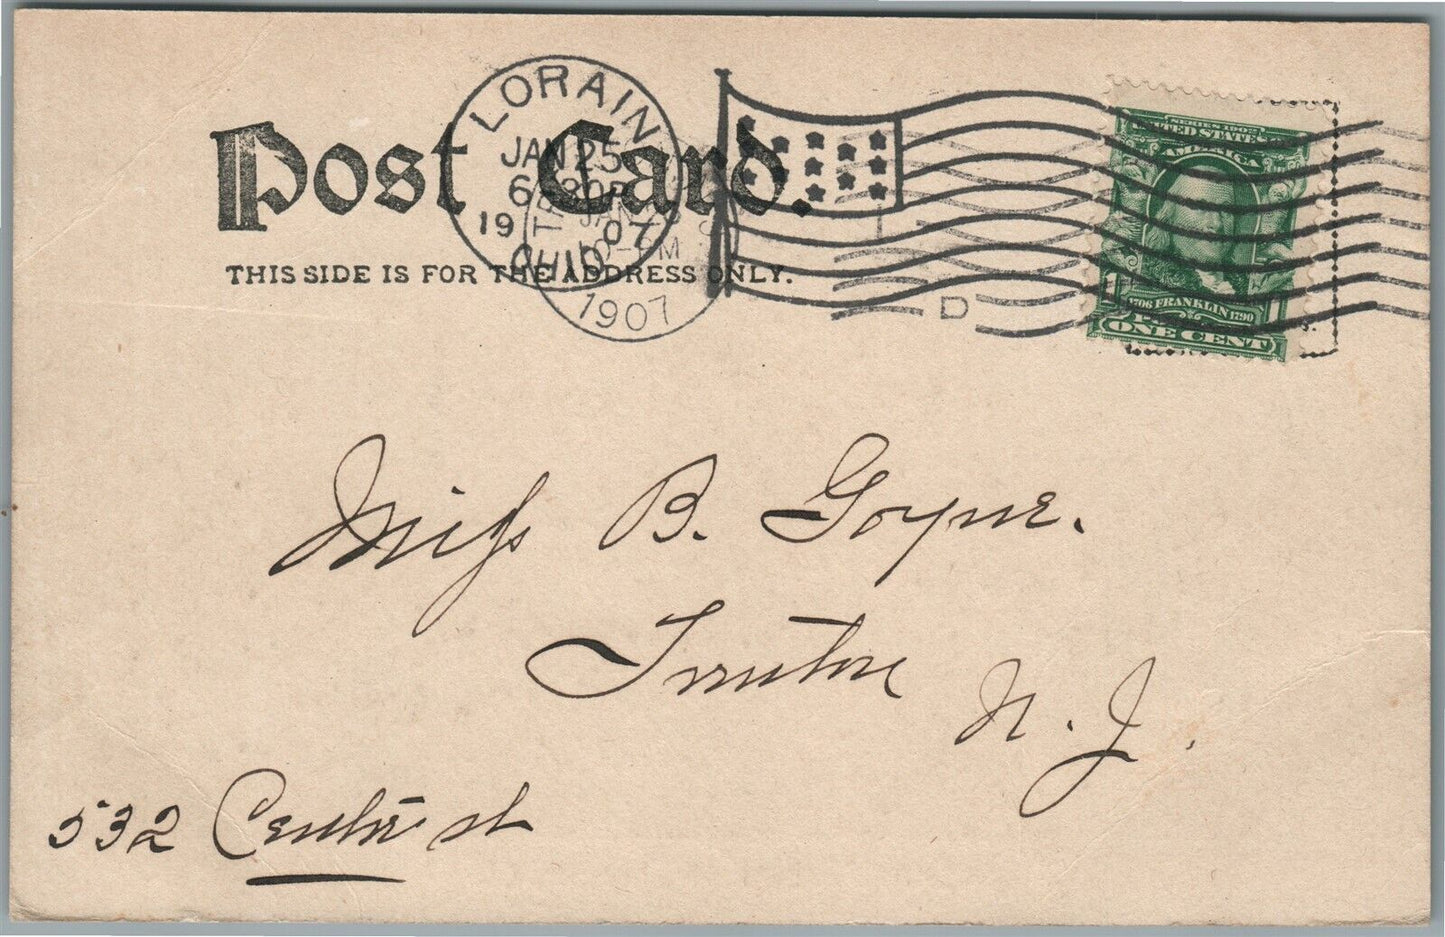 Post Card.
THIS SIDE IS FOR THE ADDRESS ONLY.
LORAIN
JAN 25
6-30P
19 07
OHIO
1907
D
SERIES 1902
UNITED STATES
AMERICA
1706 FRANKLIN 1790
ONE CENT
Miss B. Goyne.
Trenton
N. J.
532 Centre st